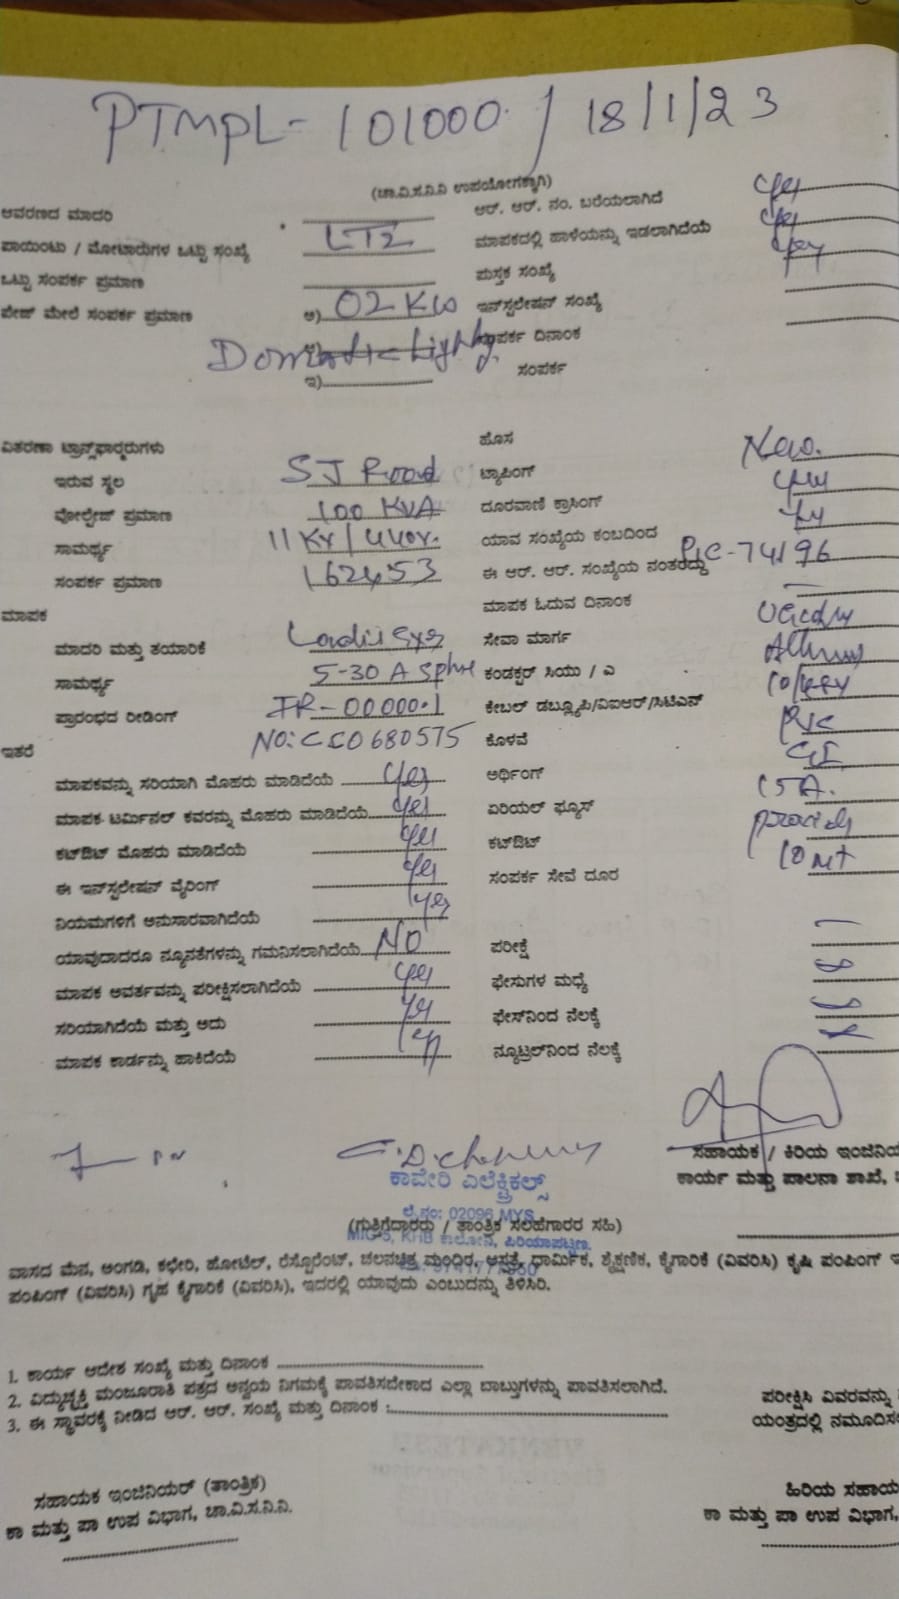 PTMPL- 101000 / 18/1/23
(ಚಾ.ವಿ.ಸ.ನಿ.ನಿ ಉಪಯೋಗಕ್ಕಾಗಿ)
ಆವರಣದ ಮಾದರಿ ಆರ್. ಆರ್. ನಂ. ಬರೆಯಲಾಗಿದೆ yes
ಪಾಯಿಂಟು / ಮೋಟಾರುಗಳ ಒಟ್ಟು ಸಂಖ್ಯೆ LT2 ಮಾಪಕದಲ್ಲಿ ಹಾಳೆಯನ್ನು ಇಡಲಾಗಿದೆಯೆ yes
ಒಟ್ಟು ಸಂಪರ್ಕ ಪ್ರಮಾಣ ಪುಸ್ತಕ ಸಂಖ್ಯೆ yes
ಪೇಜ್ ಮೇಲೆ ಸಂಪರ್ಕ ಪ್ರಮಾಣ ಅ) 02 KW ಇನ್‌ಸ್ಟಲೇಷನ್ ಸಂಖ್ಯೆ
Domestic Lighting ಸಂಪರ್ಕ ದಿನಾಂಕ
ಇ) ಸಂಪರ್ಕ
ವಿತರಣಾ ಟ್ರಾನ್ಸ್‌ಫಾರ್ಮರುಗಳು ಹೊಸ New.
ಇರುವ ಸ್ಥಲ SJ Road ಟ್ಯಾಪಿಂಗ್
ವೋಲ್ಟೇಜ್ ಪ್ರಮಾಣ 100 KVA ದೂರವಾಣಿ ಕ್ರಾಸಿಂಗ್
ಸಾಮರ್ಥ್ಯ 11 KV / 440v. ಯಾವ ಸಂಖ್ಯೆಯ ಕಂಬದಿಂದ
ಸಂಪರ್ಕ ಪ್ರಮಾಣ 162453 ಈ ಆರ್. ಆರ್. ಸಂಖ್ಯೆಯ ನಂತರದ್ದು
ಮಾಪಕ ಮಾಪಕ ಓದುವ ದಿನಾಂಕ
ಮಾದರಿ ಮತ್ತು ತಯಾರಿಕೆ ಸೇವಾ ಮಾರ್ಗ
ಸಾಮರ್ಥ್ಯ 5-30 A ಕಂಡಕ್ಟರ್ ಸಿಯು / ಎ
ಪ್ರಾರಂಭದ ರೀಡಿಂಗ್ IR-00000.1 ಕೇಬಲ್ ಡಬ್ಲ್ಯೂಪಿ/ವಿಐಆರ್/ಸಿಟಿಎಸ್
ಇತರೆ ಕೊಳವೆ PVC
ಮಾಪಕವನ್ನು ಸರಿಯಾಗಿ ಮೊಹರು ಮಾಡಿದೆಯೆ yes ಅರ್ಥಿಂಗ್ GI
ಮಾಪಕ ಟರ್ಮಿನಲ್ ಕವರನ್ನು ಮೊಹರು ಮಾಡಿದೆಯೆ yes ಏರಿಯಲ್ ಫ್ಯೂಸ್ 15A.
ಕಟ್‌ಔಟ್ ಮೊಹರು ಮಾಡಿದೆಯೆ yes ಕಟ್‌ಔಟ್
ಈ ಇನ್‌ಸ್ಟಲೇಷನ್ ವೈರಿಂಗ್ yes ಸಂಪರ್ಕ ಸೇವೆ ದೂರ 10 mt
ನಿಯಮಗಳಿಗೆ ಅನುಸಾರವಾಗಿದೆಯೆ yes
ಯಾವುದಾದರೂ ನ್ಯೂನತೆಗಳನ್ನು ಗಮನಿಸಲಾಗಿದೆಯೆ NO ಪರೀಕ್ಷೆ
ಮಾಪಕ ಆವರ್ತವನ್ನು ಪರೀಕ್ಷಿಸಲಾಗಿದೆಯೆ yes ಫೇಸುಗಳ ಮಧ್ಯೆ
ಸರಿಯಾಗಿದೆಯೆ ಮತ್ತು ಅದು yes ಫೇಸ್‌ನಿಂದ ನೆಲಕ್ಕೆ
ಮಾಪಕ ಕಾರ್ಡನ್ನು ಹಾಕಿದೆಯೆ ನ್ಯೂಟ್ರಲ್‌ನಿಂದ ನೆಲಕ್ಕೆ
ಕಾವೇರಿ ಎಲೆಕ್ಟ್ರಿಕಲ್ಸ್ ಸಹಾಯಕ / ಕಿರಿಯ
ಲೈ.ನಂ: 02096 MYS ಕಾರ್ಯ ಮತ್ತು ಪಾಲನಾ ಶಾಖೆ,
(ಗುತ್ತಿಗೆದಾರರು / ತಾಂತ್ರಿಕ ಸಲಹೆಗಾರರ ಸಹಿ)
KHB ಕಾಲೋನಿ, ಪಿರಿಯಾಪಟ್ಟಣ.
ವಾಸದ ಮನೆ, ಅಂಗಡಿ, ಕಛೇರಿ, ಹೋಟೆಲ್, ರೆಸ್ಟೋರೆಂಟ್, ಚಲನಚಿತ್ರ ಮಂದಿರ, ಆಸ್ಪತ್ರೆ, ಧಾರ್ಮಿಕ, ಶೈಕ್ಷಣಿಕ, ಕೈಗಾರಿಕೆ (ವಿವರಿಸಿ) ಕೃಷಿ ಪಂಪಿಂಗ್
ಪಂಪಿಂಗ್ (ವಿವರಿಸಿ) ಗೃಹ ಕೈಗಾರಿಕೆ (ವಿವರಿಸಿ), ಇದರಲ್ಲಿ ಯಾವುದು ಎಂಬುದನ್ನು ತಿಳಿಸಿರಿ.
1. ಕಾರ್ಯ ಆದೇಶ ಸಂಖ್ಯೆ ಮತ್ತು ದಿನಾಂಕ
2. ವಿದ್ಯುಚ್ಛಕ್ತಿ ಮಂಜೂರಾತಿ ಪತ್ರದ ಅನ್ವಯ ನಿಗಮಕ್ಕೆ ಪಾವತಿಸಬೇಕಾದ ಎಲ್ಲಾ ಬಾಬ್ತುಗಳನ್ನು ಪಾವತಿಸಲಾಗಿದೆ. ಪರೀಕ್ಷಿಸಿ ವಿವರವನ್ನು
3. ಈ ಸ್ಥಾವರಕ್ಕೆ ನೀಡಿದ ಆರ್. ಆರ್. ಸಂಖ್ಯೆ ಮತ್ತು ದಿನಾಂಕ : ಯಂತ್ರದಲ್ಲಿ
ಸಹಾಯಕ ಇಂಜಿನಿಯರ್ (ತಾಂತ್ರಿಕ) ಹಿರಿಯ
ಕಾ ಮತ್ತು ಪಾ ಉಪ ವಿಭಾಗ, ಚಾ.ವಿ.ಸ.ನಿ.ನಿ. ಕಾ ಮತ್ತು ಪಾ ಉಪ ವಿಭಾಗ,